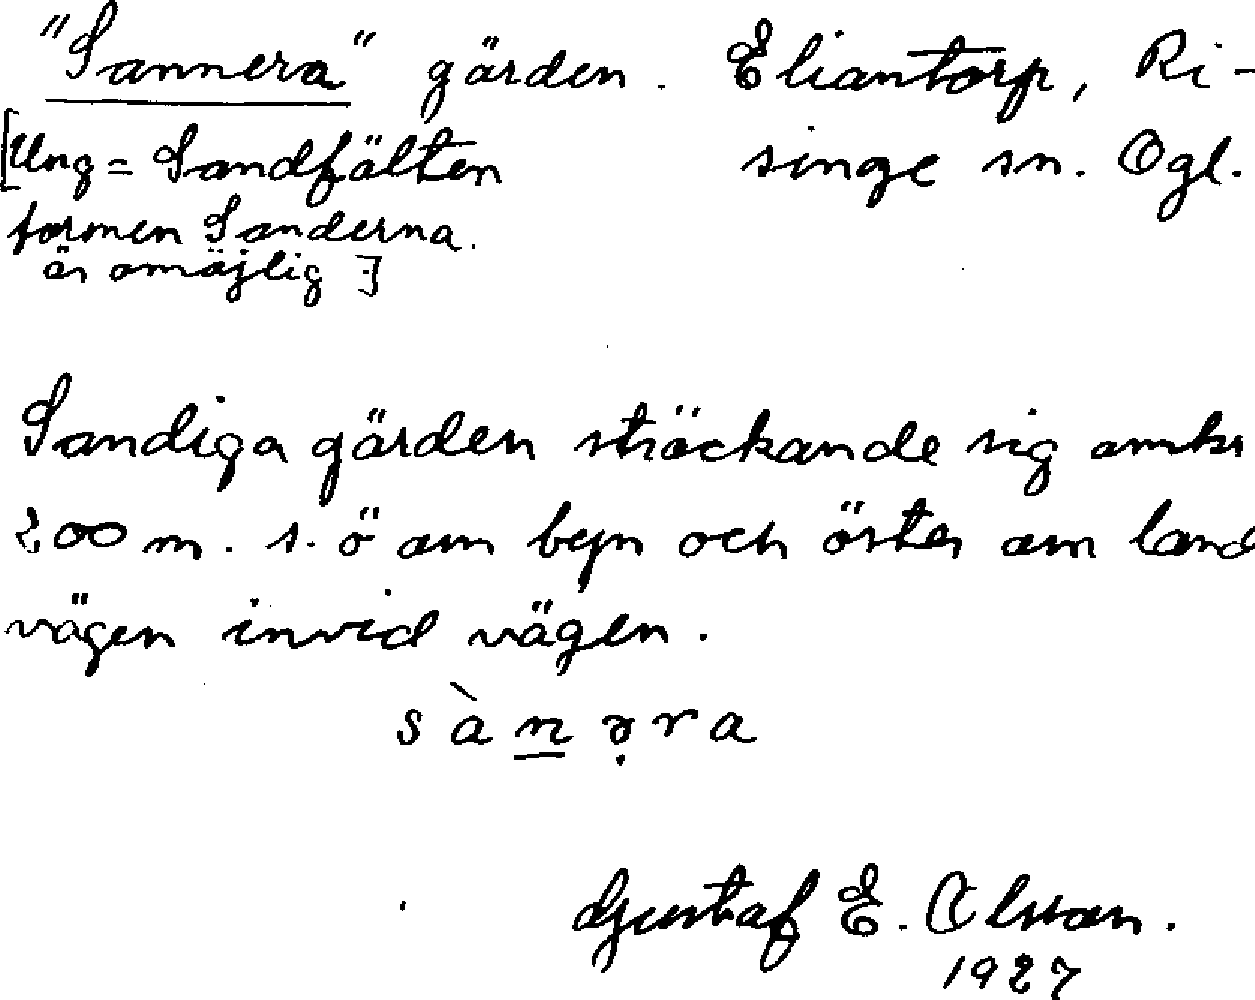 "Sannera" gärden. Eliantorp, Ri-
singe sn. Ögl.
[Ung = Sandfälten
formen Sanderna.
är omöjlig]
Sandiga gärden sträckande sig omkr
200 m. s. ö om byn och öster om land
vägen invid vägen.
sànəra
Gustaf E. Olsson.
1927